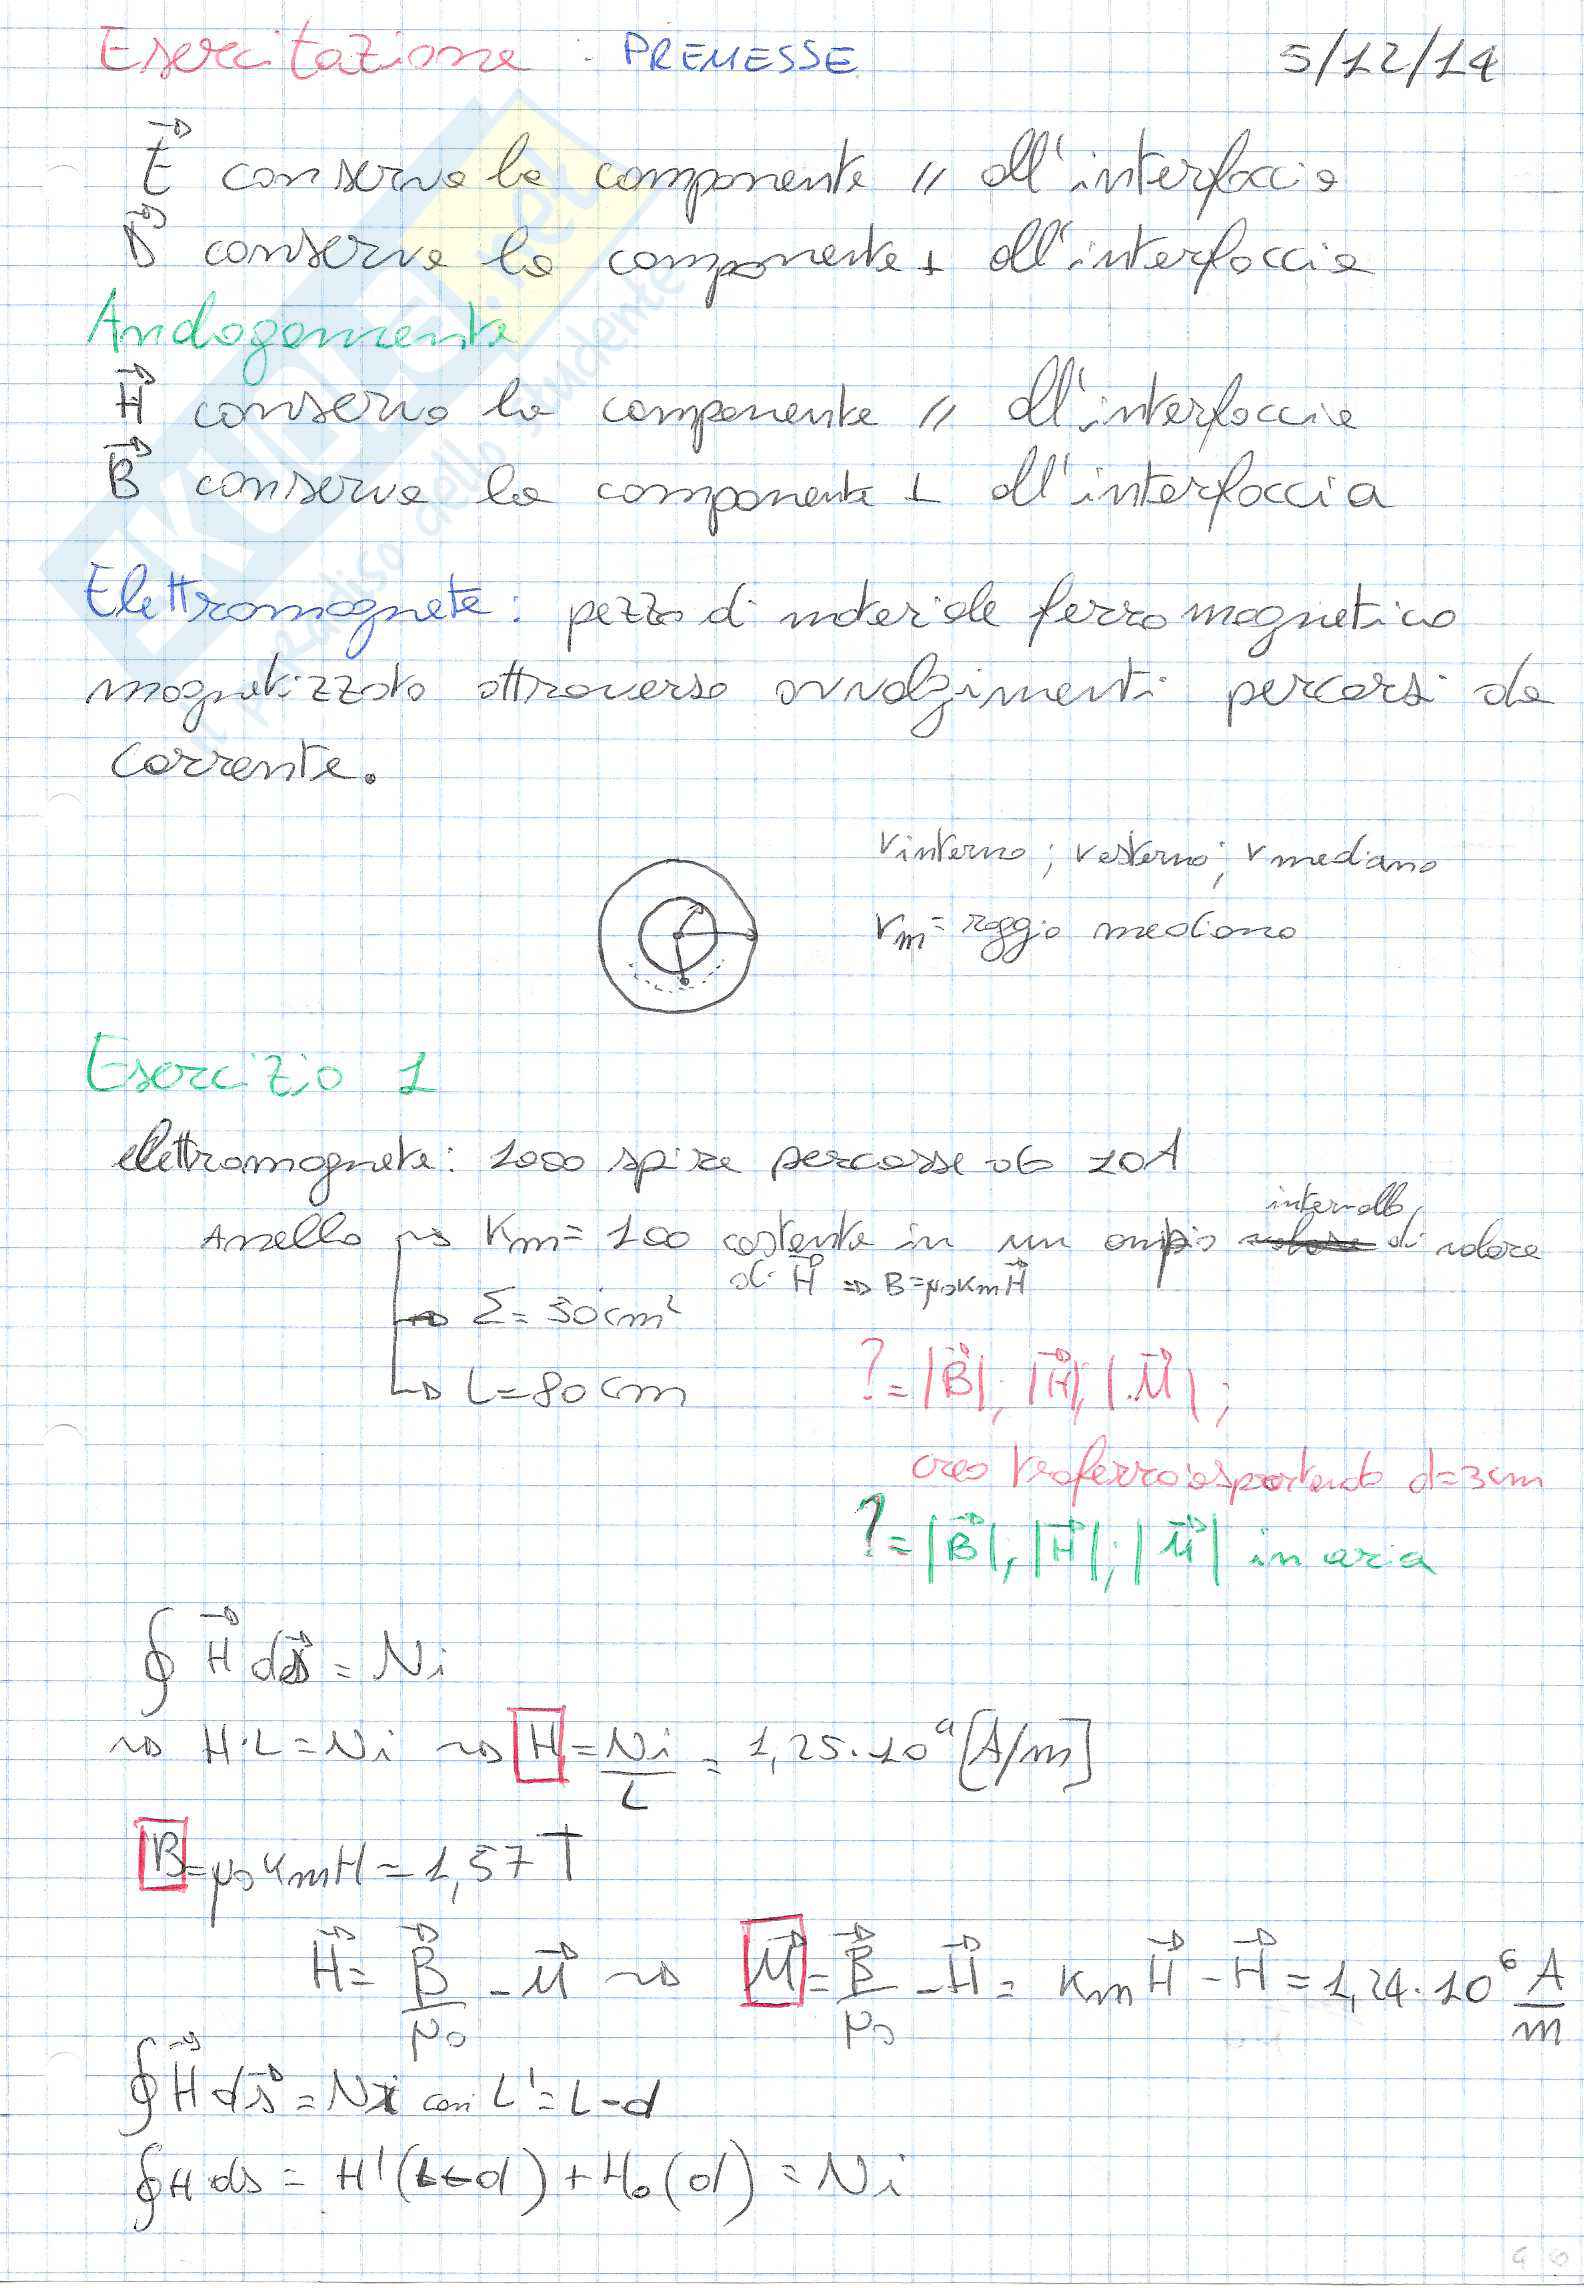 Esercitazione : PREMESSE 5/12/14
E⃗ conserva la componente // all'interfaccia
D⃗ conserva la componente ⊥ all'interfaccia
Analogamente
H⃗ conserva la componente // all'interfaccia
B⃗ conserva la componente ⊥ all'interfaccia
Elettromagnete: pezzo di materiale ferromagnetico
magnetizzato attraverso avvolgimenti percorsi da
corrente.
r interno ; r esterno ; r mediano
rm = raggio mediano
Esercizio 1
elettromagnete: 1000 spire percorse da 10A
Anello → Km = 100 costante in un ampio intervallo di valore
di H⃗ ⇒ B=μ0KmH⃗
→ Σ = 50cm²
→ L=80cm
? = |B⃗|; |H⃗|; |M⃗| ;
creo traferro asportando d=3cm
? = |B⃗|; |H⃗|; |M⃗| in aria
∮ H⃗ ds⃗ = Ni
⇝ H·L = Ni ⇝ H = Ni/L = 1,25·10⁴ [A/m]
B = μ0KmH = 1,57 T
H⃗ = B⃗/μ0 - M⃗ ⇝ M⃗ = B⃗/μ0 - H⃗ = KmH⃗ - H⃗ = 1,24·10⁶ A/m
∮ H⃗ ds⃗ = Ni con L' = L-d
∮ H ds = H'(L-d) + H0(d) = Ni
SKUOLA.net
il paradiso dello studente